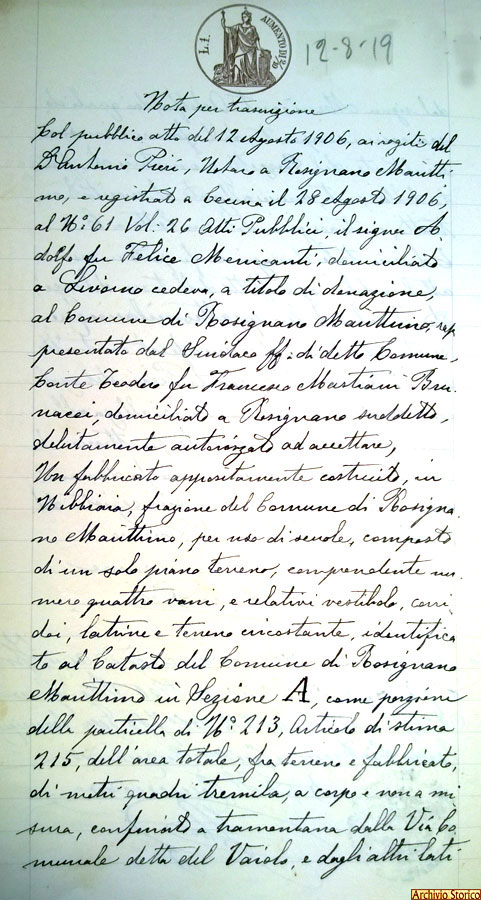 L.1. AUMENTO DI 2/10
12-8-19
Nota per trascrizione
Col pubblico atto del 12 Agosto 1906, ai rogiti del
Dr. Antonio Pieri, Notaro a Rosignano Maritti
mo, e registrato a Cecina il 28 Agosto 1906,
al No. 61 Vol. 26 Atti Pubblici, il signor A
dolfo fu Felice Menicanti, domiciliato
a Livorno cedeva, a titolo di donazione,
al Comune di Rosignano Marittimo, rap
presentato dal Sindaco ff: di detto Comune,
Conte Teodoro fu Francesco Mastiani Bru
nacci, domiciliato a Rosignano suddetto,
debitamente autorizzato ad accettare,
Un fabbricato appositamente costruito, in
Nibbiaia, frazione del Comune di Rosigna
no Marittimo, per uso di scuole, composto
di un solo piano terreno, comprendente nu
mero quattro vani, e relativi vestibolo, corri
doi, latrine e terreno circostante, identifica
to al Catasto del Comune di Rosignano
Marittimo in Sezione A, come porzione
della particella di No. 213, Articolo di stima
215, dell'area totale, fra terreno e fabbricato,
di metri quadri tremila, a corpo e non a mi
sura, confinato a tramontana dalla Via Co
munale detta del Vaiolo, e dagli altri lati
Archivio Storico